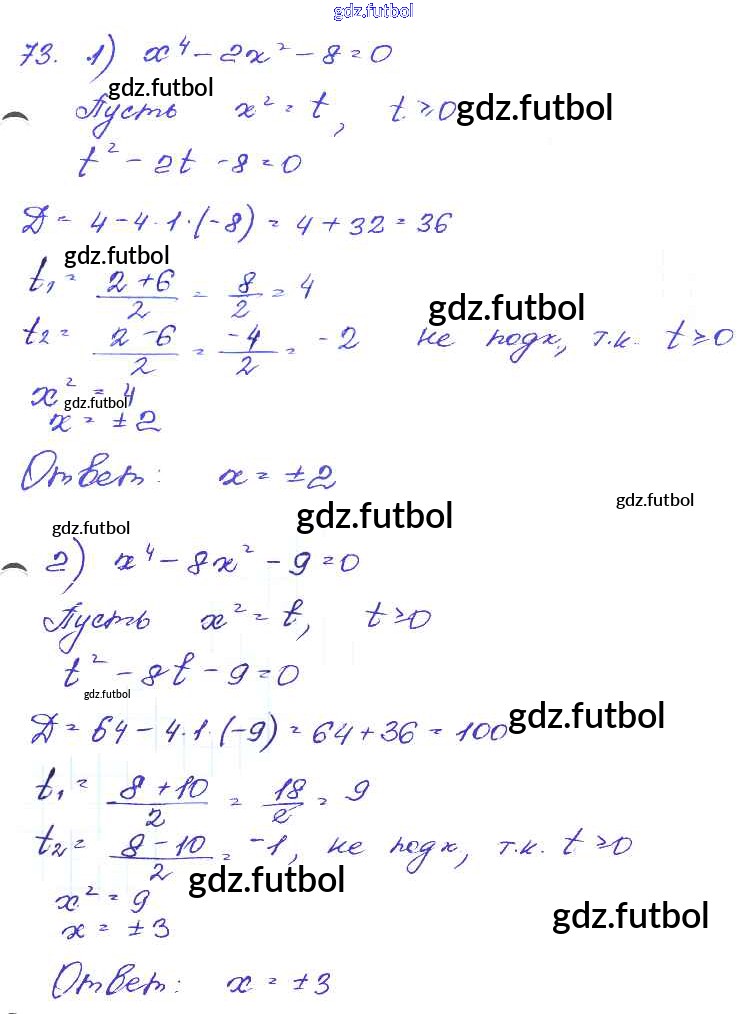 gdz.futbol
73. 1) x⁴ - 2x² - 8 = 0
gdz.futbol
Пусть x² = t, t ≥ 0 gdz.futbol
t² - 2t - 8 = 0
Д = 4 - 4·1·(-8) = 4 + 32 = 36
gdz.futbol
t₁ = (2+6)/2 = 8/2 = 4
gdz.futbol
t₂ = (2-6)/2 = -4/2 = -2 не подх, т.к. t ≥ 0
x² = 4
gdz.futbol
x = ±2
Ответ: x = ±2
gdz.futbol
gdz.futbol
gdz.futbol
2) x⁴ - 8x² - 9 = 0
Пусть x² = t, t ≥ 0
t² - 8t - 9 = 0
gdz.futbol
Д = 64 - 4·1·(-9) = 64 + 36 = 100 gdz.futbol
t₁ = (8+10)/2 = 18/2 = 9
t₂ = (8-10)/2 = -1, не подх, т.к. t ≥ 0
gdz.futbol
x² = 9
gdz.futbol
x = ±3
Ответ: x = ±3